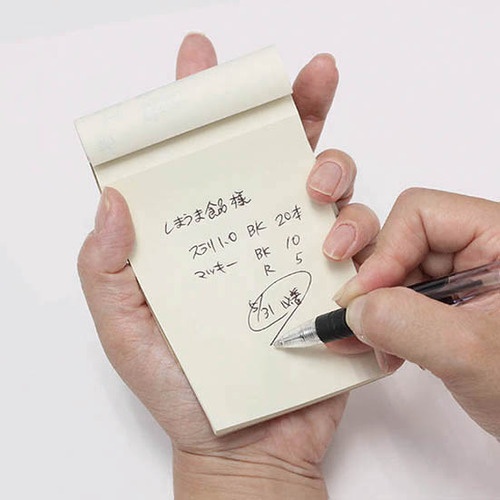 しまうま食品 様
スラリ1.0 BK 20本
マッキー BK 10
R 5
5/31